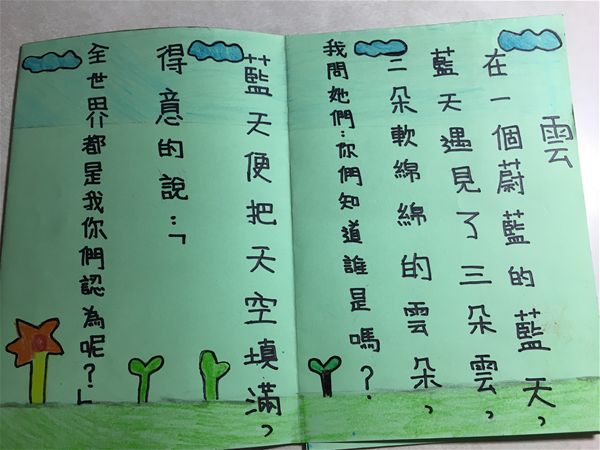 雲
在一個蔚藍的藍天，
藍天遇見了三朵雲，
二朵軟綿綿的雲朵，
我問她們：你們知道誰是嗎？
藍天便把天空填滿，
得意的說：「
全世界都是我你們認為呢？」